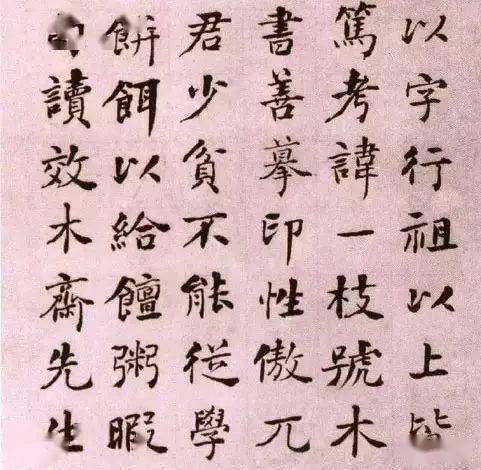 以字行祖以上皆
篤考諱一枝號木
書善摹印性傲兀
君少貧不能從學
餅餌以給饘粥暇
讀效木齋先生